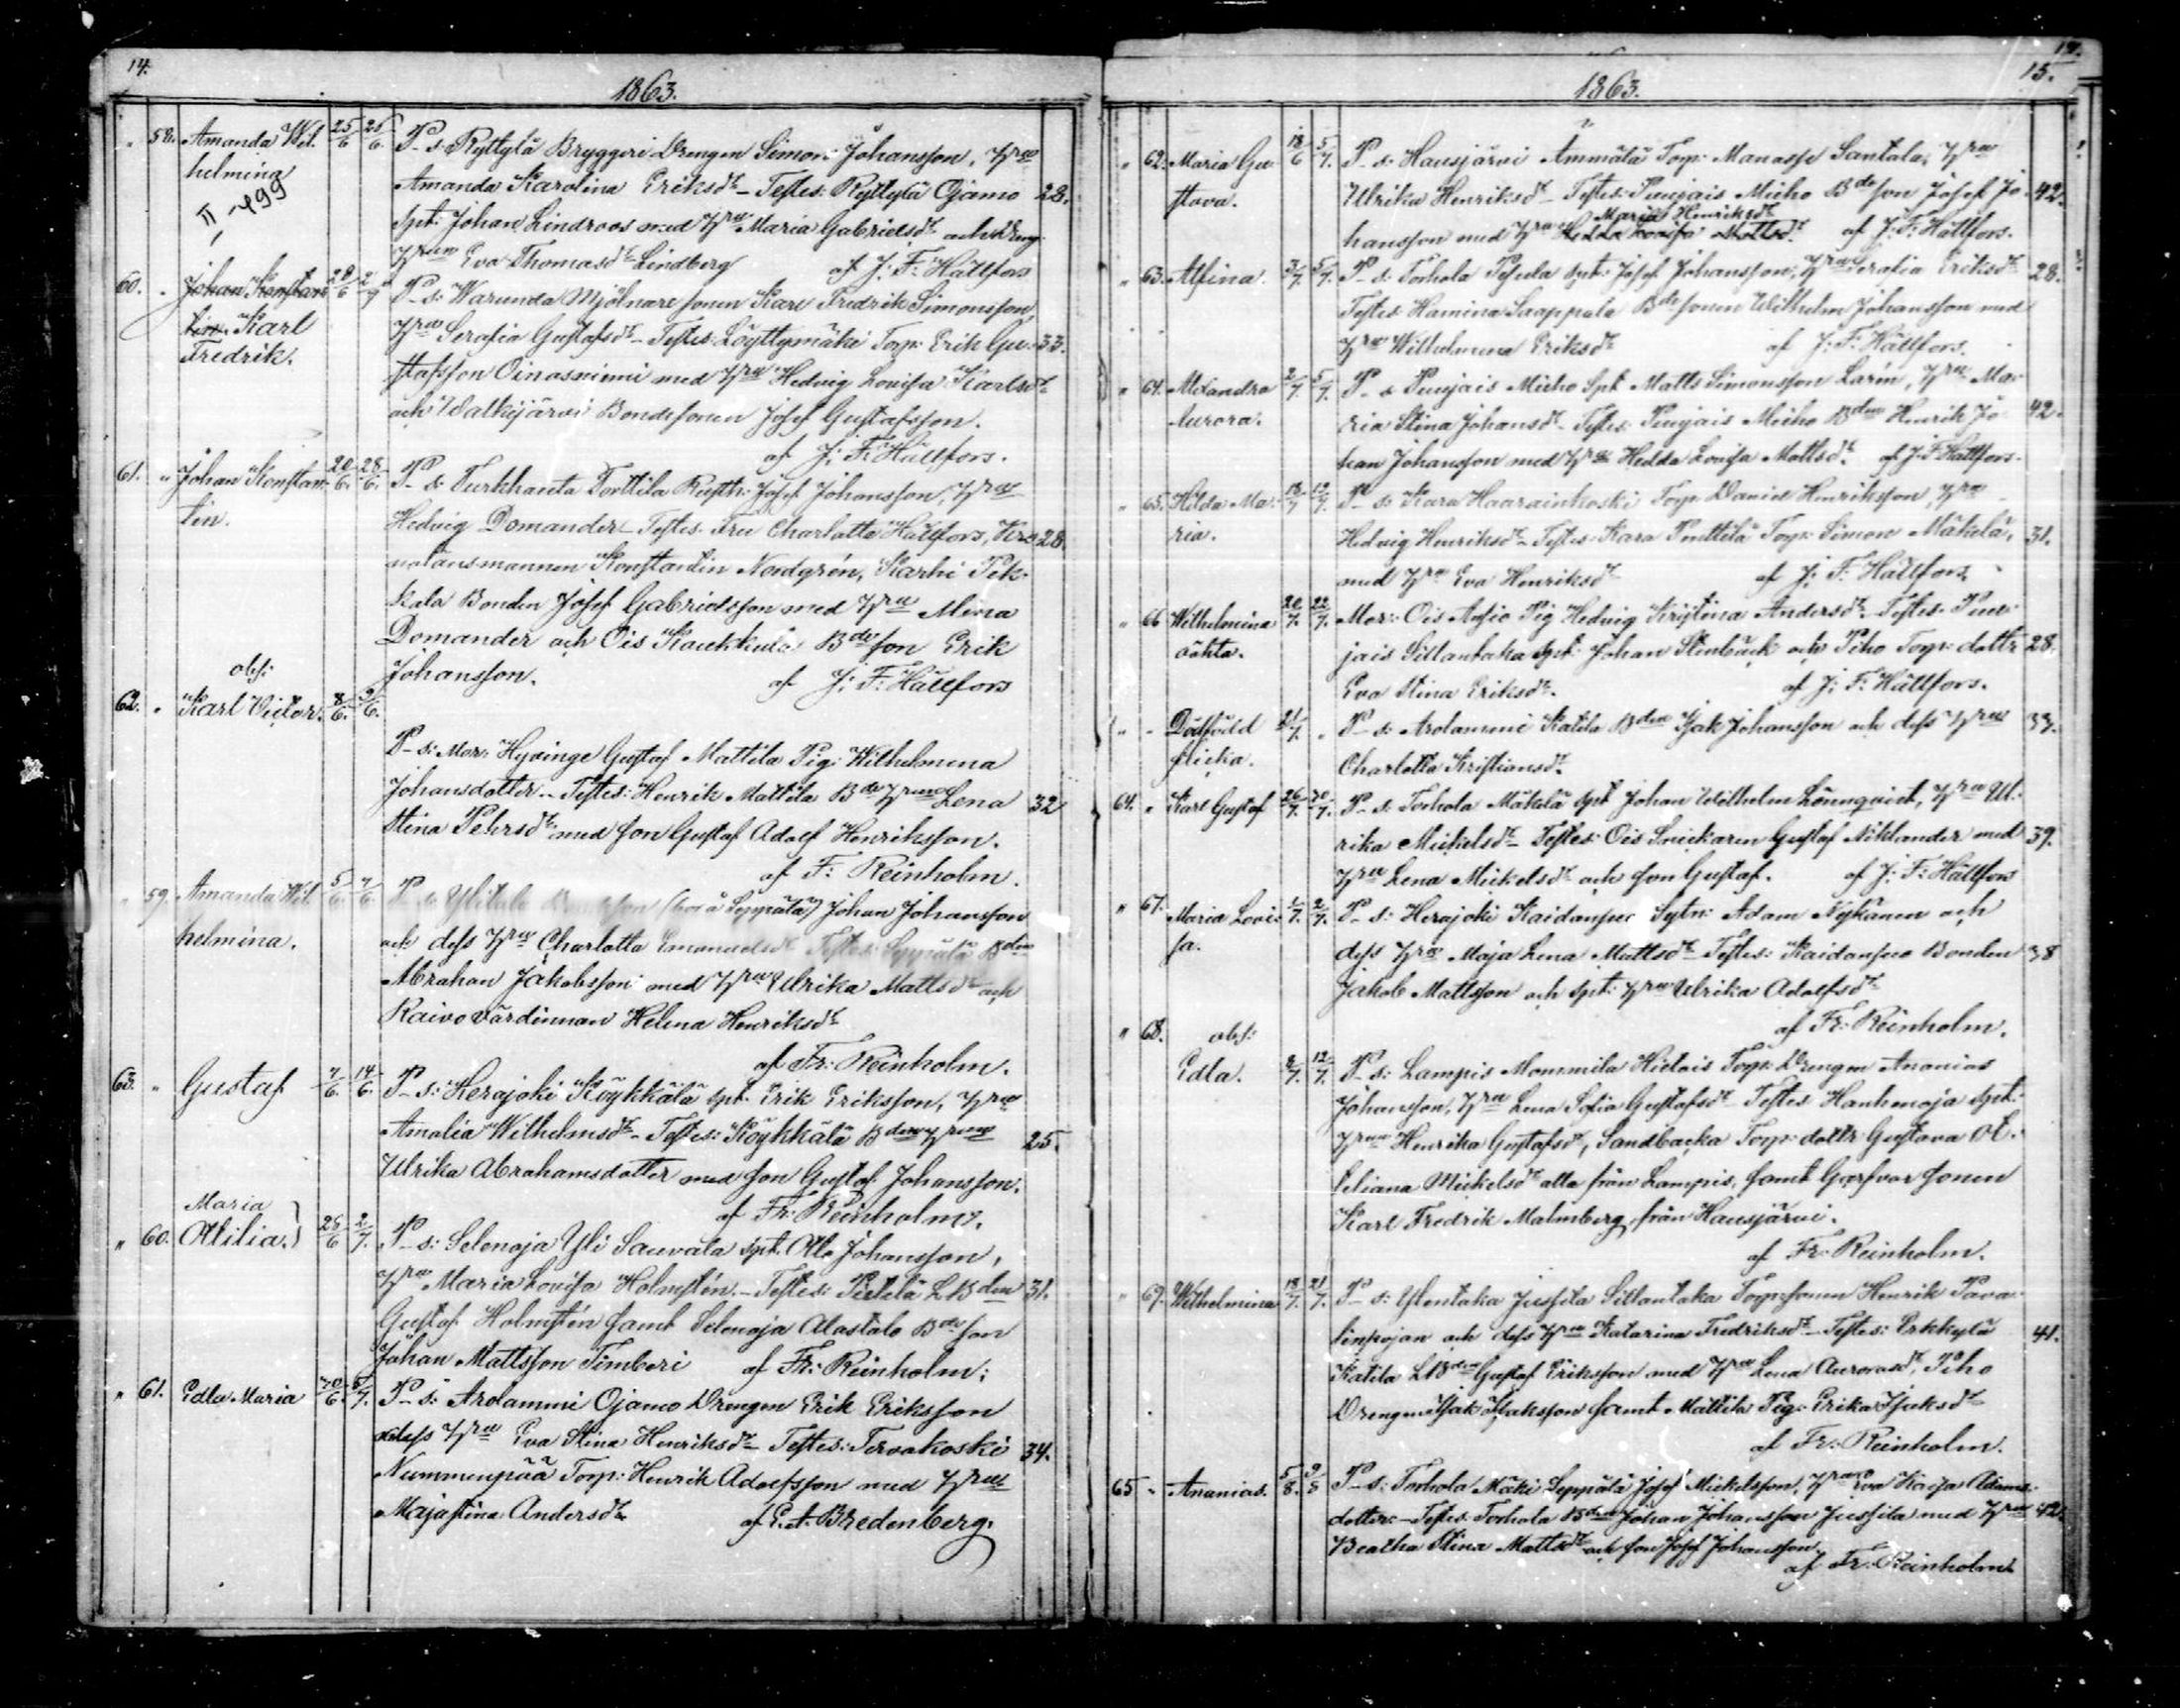 14.
1863.
" 58. Amanda Wil- 25/6 26/6. P-s: Ryttylä Bryggeri Drengen Simon Johansson, Hru
helmina Amanda Karolina Eriksdr – Testes: Ryttylä Ojamo 28.
II 499 Spt: Johan Lindroos med Hru Maria Gabrielsdr och Dreng
Hrun Eva Thomasdr Lindberg af J: F: Hällfors
60. " Johan Konstan 28/6 2/7 P-s: Warunda Mjölnare sonen Karl Fredrik Simonsson,
tin Karl Hru Serafia Gustafsdr – Testes: Löyttymäki Torp: Erik Gu- 33.
Fredrik. stafsson Oinasniemi med Hru Hedvig Lovisa Karlsdr
och Walkijärvi Bondesonen Josef Gustafsson.
af J: F: Hällfors.
61. " Johan Konstan- 20/6. 28/6. P-s: Turkhauta Torttila Rusth: Josef Johansson, Hru
tin. Hedvig Domander – Testes: Fru Charlotta Hällfors, Kro- 28.
nolänsmannen Konstantin Nordgrén, Karhi Pek-
kala Bonden Josef Gabrielsson med Hru Mina
Domander och Ois Kaukkula Bde son Erik
Johansson. af J: F: Hällfors
obs:
62. " Karl Victor. 8/6. 9/6.
P-s: Mor: Hyvinge Gustaf Mattila Pig: Wilhelmina
Johansdotter – Testes: Henrik Mattila Bde Hrun Lena 32
Stina Pehrsdr med son Gustaf Adolf Henriksson.
af F: Reinholm.
" 59. Amanda Wil- 5/6. 7/6. P-s Ylitalo (bor å Seppälä) Johan Johansson
helmina. och dess Hru Charlotta Emanuelsdr Testes: Seppälä Bden
Abraham Jakobsson med Hru Ulrika Mattsdr och
Raivo värdinnan Helena Henriksdr
af Fr: Reinholm.
63. " Gustaf 7/6. 14/6. P-s: Herajoki Köykkälä spt. Erik Eriksson, Hru
Amalia Wilhelmsdr – Testes: Köykkälä Bden Hrun 25.
Ulrika Abrahamsdotter med son Gustaf Johansson.
af Fr: Reinholm.
Maria
" 60. Otilia. 28/6 2/7. P-s: Selenoja Yli Sauvala spt. Johansson,
Hru Maria Lovisa Holmstén. – Testes: Pietilä LBden 31.
Gustaf Holmstén samt Selenoja Alastalo Bde son
Johan Mattsson Timberi af Fr: Reinholm:
" 61. Edla Maria 30/6. 5/7. P-s: Arolammi Ojamo Drengen Erik Eriksson
o dess Hru Eva Stina Henriksdr – Testes: Tervakoski 34.
Nummenpää Torp: Henrik Adolfsson med Hru
Majastina Andersdr af E.A. Bredenberg.
15.
1863.
" 62. Maria Gu- 18/6 5/7. P-s: Hausjärvi Ammälä Torp: Manasse Santala, Hru
stava. Ulrika Henriksdr – Testes: Puujais Micko Bde son Josef Jo- 42.
Maria Henriksdr
hansson med Hru Hedda Lovisa Mattsdr. af J: F: Hällfors.
" 63. Alfina. 3/7. 5/7. P-s: Torhola Pesula spt: Josef Johansson, Hru Serafia Eriksdr 28.
Testes Hamina Saappala Bde sonen Wilhelm Johansson med
Hru Wilhelmina Eriksdr af J: F: Hällfors.
" 64. Alexandra 2/7. 5/7. P-s Puujais Micko Spt Matts Simonsson Larin, Hru Ma-
Aurora. ria Stina Johansdr – Testes: Puujais Micko Bden Henrik Jo- 42.
han Johansson med Hru Hedda Lovisa Mattsdr. af J: F: Hällfors.
" 65. Hilda Ma- 18/7 19/7. P-s: Kara Haarainkoski Torp: Daniel Henriksson, Hru
ria. Hedvig Henriksdr – Testes: Kara Penttilä Torp: Simon Mäkelä, 31.
med Hru Eva Henriksdr af J: F: Hällfors
" 66 Wilhelmina 20/7. 22/7. Mor: Ois Anjio Pig Hedvig Kristina Andersdr – Testes: Puu-
oäkta. jais Sillantaka spt: Johan Stenbäck och Piho Torp: dottr 28.
Eva Stina Eriksdr. af J: F: Hällfors.
" - Dödfödd 21/7. " P-s: Arolammi Katila Bden Isak Johansson och dess Hru 37.
flicka. Charlotta Kristiansdr.
64. " Karl Gustaf 26/7. 30/7. P-s: Torhola Mäkelä spt Johan Wilhelm Lönnqvist, Hru Ul-
rika Mickelsdr – Testes: Ois Snickaren Gustaf Niklander med 39.
Hru Lena Mickelsdr och son Gustaf. af J: F: Hällfors
" 67. Maria Lovi- 1/7. 2/7. P-s: Herajoki Kaidanpää Sytn: Adam Nykänen och
sa. dess Hru Maja Lena Mattsdr – Testes: Kaidanpää Bonden 38
Jakob Mattsson och spt: Hru Ulrika Adolfsdr
af Fr: Reinholm.
" 68. obs:
Edla. 8/7. 12/7. P-s: Lampis Mommila Hietois Torp: Drengen Ananias
Johansson, Hru Lena Sofia Gustafsdr – Testes Hankmoja spt:
Hrun Henrika Gustafsdr, Sandbacka Torp: dottr Gustava O-
tiliana Mickelsdr alla från Lampis, samt Garfvar sonen
Karl Fredrik Malmberg från Hausjärvi.
af Fr: Reinholm.
" 69. Wilhelmina 18/7. 21/7. P-s: Ylentaka Jussila Sillantaka Torpsonen Henrik Pava-
linpojan och dess Hru Katarina Fredriksdr – Testes: Erkkylä 41.
Katila LBden Gustaf Eriksson med Hru Lena Aurorasdr, Piho
Drengen Isak Isaksson samt Mattila Pig: Erika Isaksdr
af Fr: Reinholm.
65 " Ananias. 5/8. 9/8 P-s: Torhola Mäki Seppälä Josef Mickelsson, Hru Eva Kajsa Adams-
dotter. – Testes: Torhola Bden Johan Johansson Jussila med Hru 42.
Beatha Stina Mattsdr och son Josef Johansson.
af Fr: Reinholm